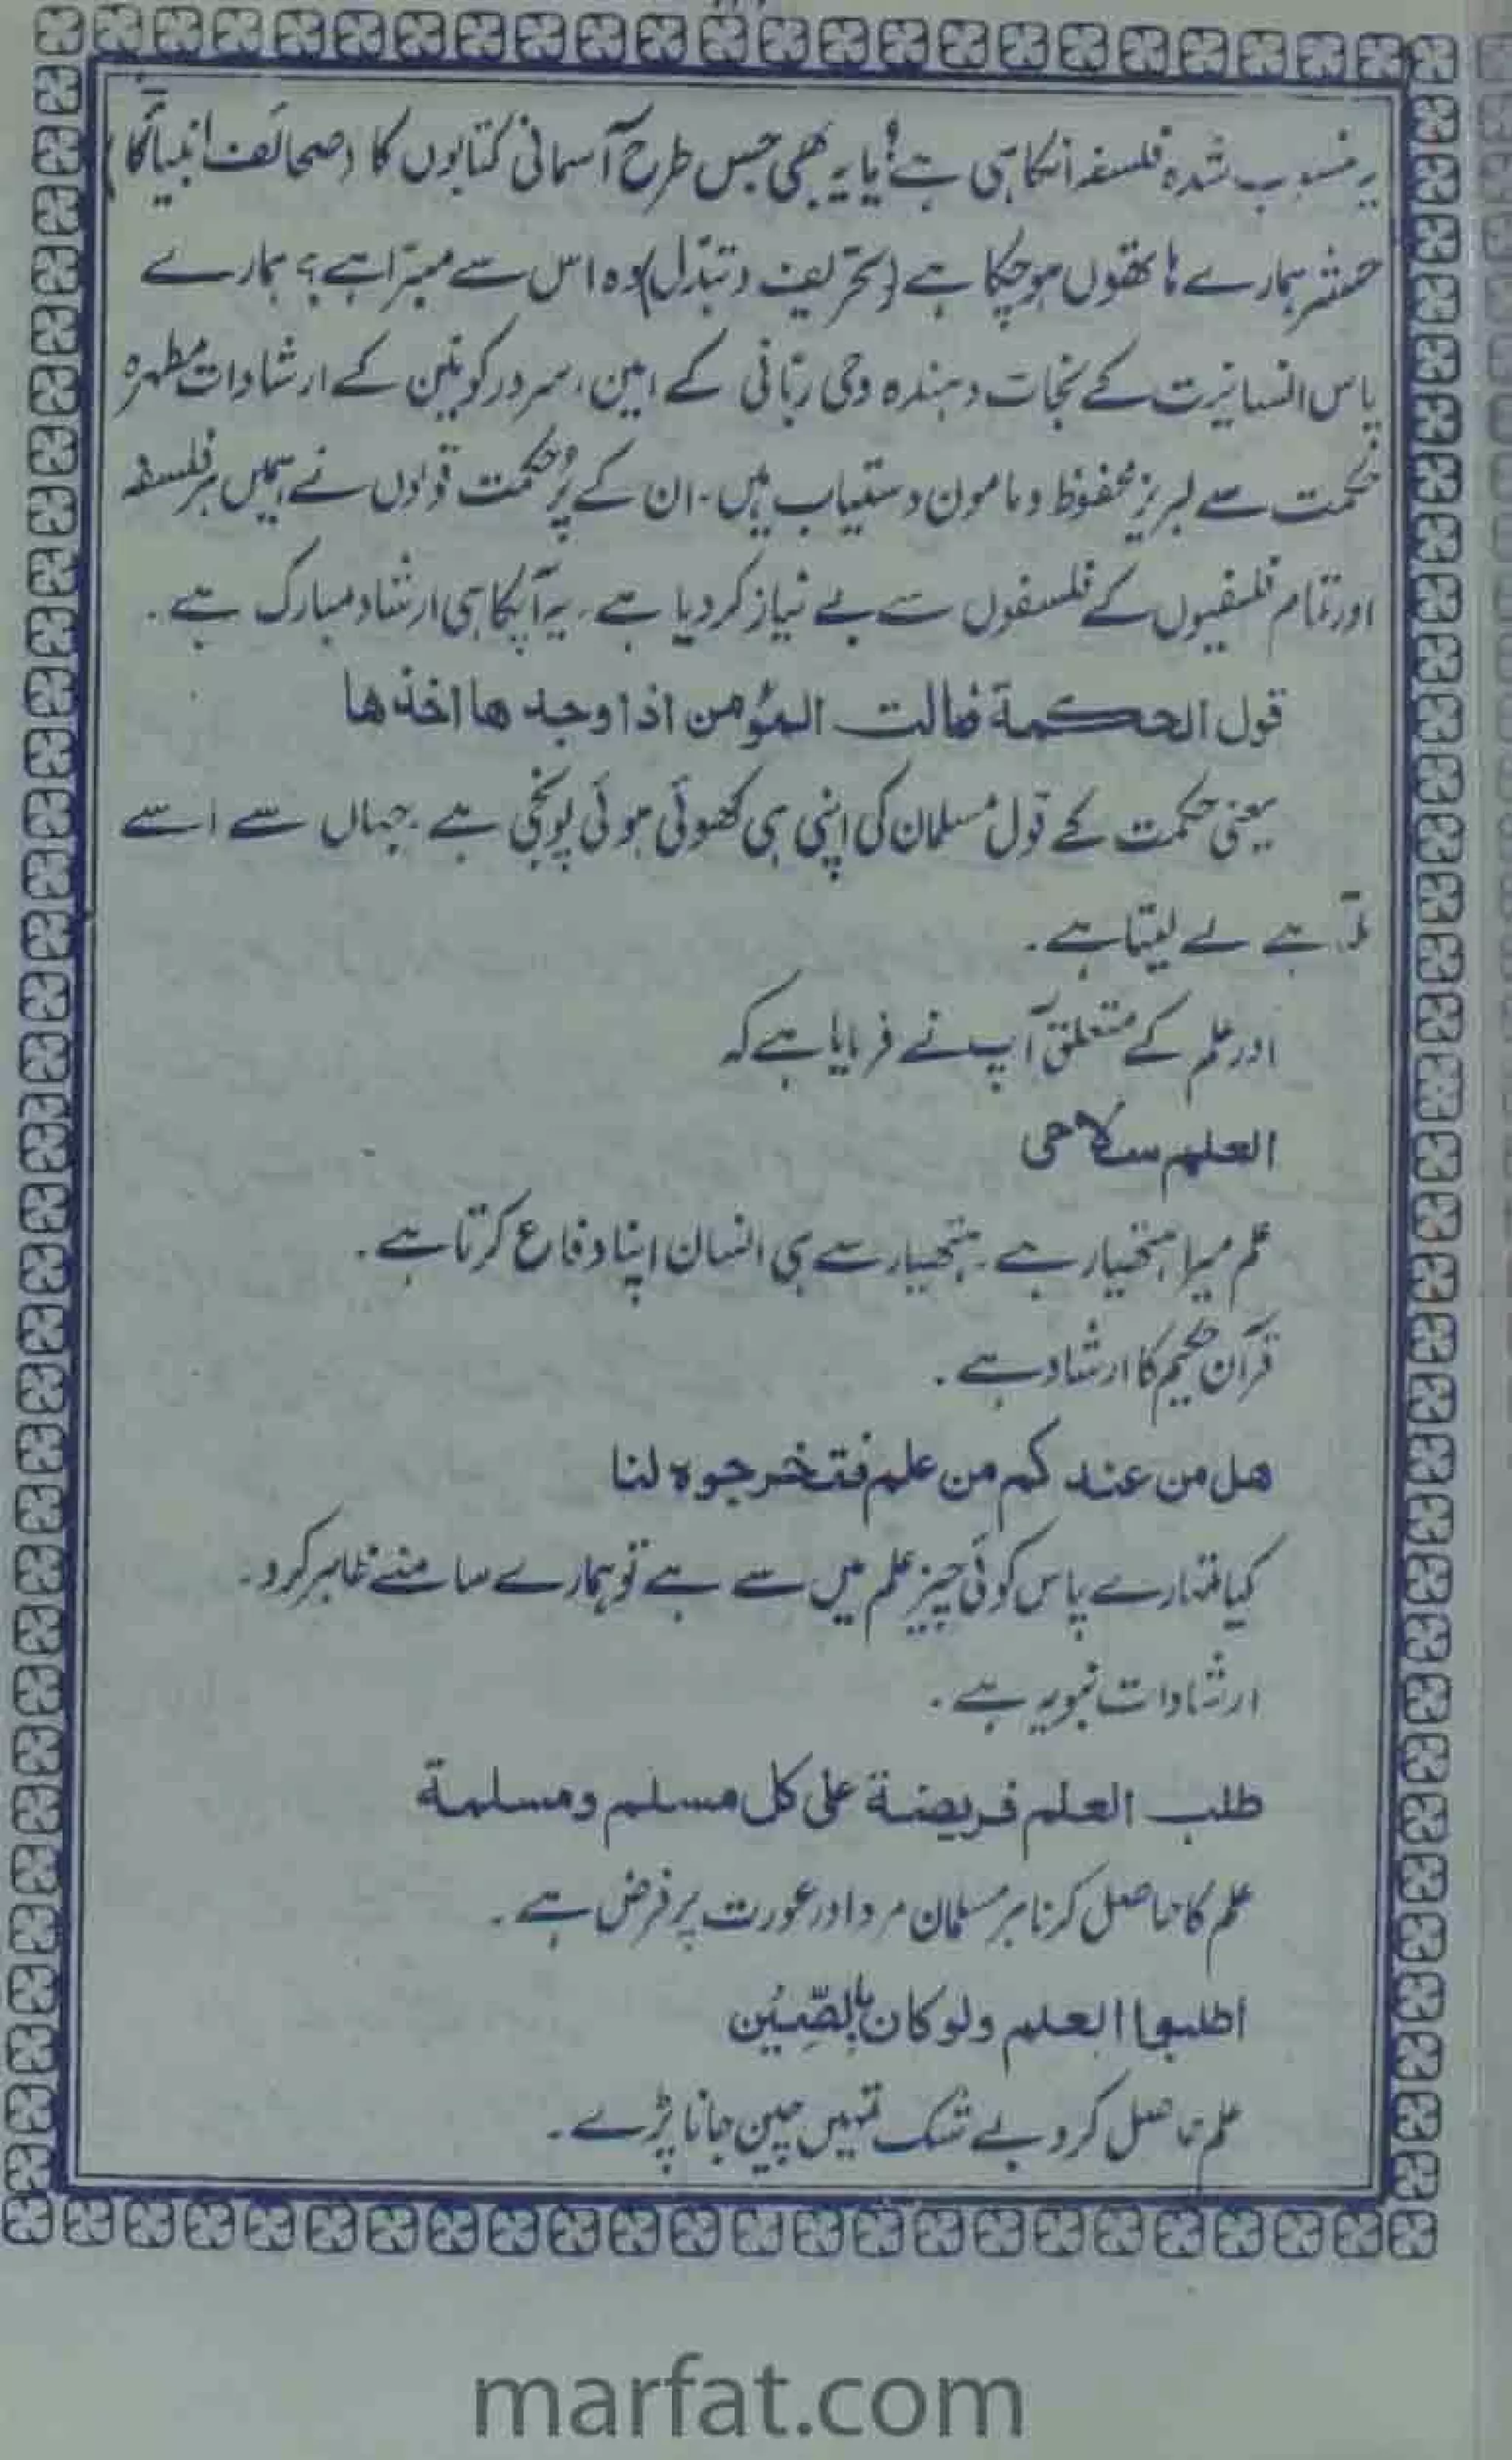 یہ منسوب شدہ فلسفہ انکا ہی ہے؟ یا یہ بھی جس طرح آسمانی کتابوں کا (صحائف انبیاؑ کا)
حشر ہمارے ہاتھوں ہو چکا ہے (تحریف و تبدّل) وہ اس سے مبرّا ہے؟ ہمارے
پاس انسانیت کے نجات دہندہ وحی ربّانی کے امین، سرور کونین کے ارشادات مطہرہ
حکمت سے لبریز محفوظ و مامون دستیاب ہیں۔ ان کے پُر حکمت قولوں نے ہمیں ہر فلسفہ
اور تمام فلسفیوں کے فلسفوں سے بے نیاز کر دیا ہے۔ یہ آپکا ہی ارشاد مبارک ہے۔
قول الحكمة ضالت المؤمن اذا وجدها اخذها
یعنی حکمت کے قول مسلمان کی اپنی ہی کھوئی ہوئی پونجی ہے۔ جہاں سے اسے
ملتا ہے لے لیتا ہے۔
اور علم کے متعلق آپ نے فرمایا ہے کہ
العلم سلاحی
علم میرا ہتھیار ہے۔ ہتھیار سے ہی انسان اپنا دفاع کرتا ہے۔
قرآن حکیم کا ارشاد ہے۔
هل من عندكم من علم فتخرجوه لنا
کیا تمہارے پاس کوئی چیز علم میں سے ہے تو ہمارے سامنے ظاہر کرو۔
ارشادات نبویہ ہے۔
طلب العلم فريضة على كل مسلم ومسلمة
علم کا حاصل کرنا ہر مسلمان مرد اور عورت پر فرض ہے۔
اطلبوا العلم ولو كان بالصّين
علم حاصل کرو بے شک تمہیں چین جانا پڑے۔
marfat.com